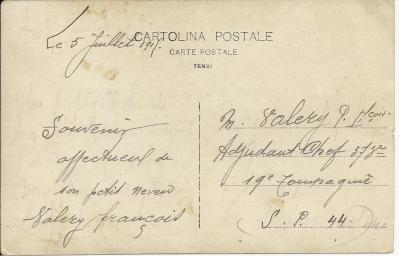 CARTOLINA POSTALE
CARTE POSTALE
TENSI
Le 5 Juillet 191
Souvenir
affectueux de
son petit neveu
Valery françois
M. Valery P. fçois.
Adjudant Chef 373e
19e Compagnie
S. P. 44.